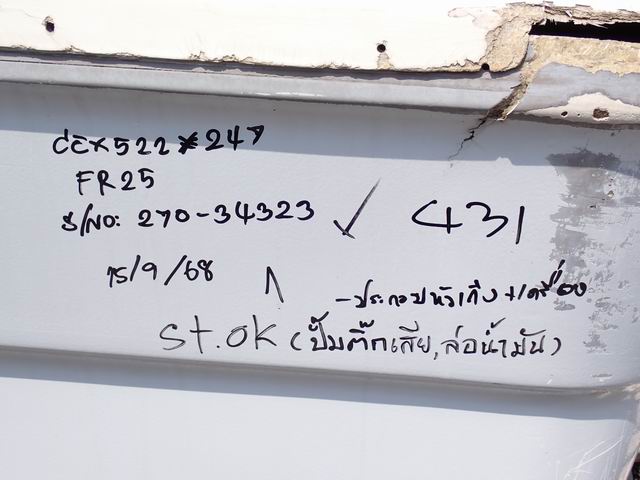 CEX522*247
FR25
S/NO: 270-34323 ✓ 431
15/9/68
-ประกอบหัวเก๋ง+เครื่อง
st.ok (ปั๊มติ๊กเสีย,ล่อน้ำมัน)